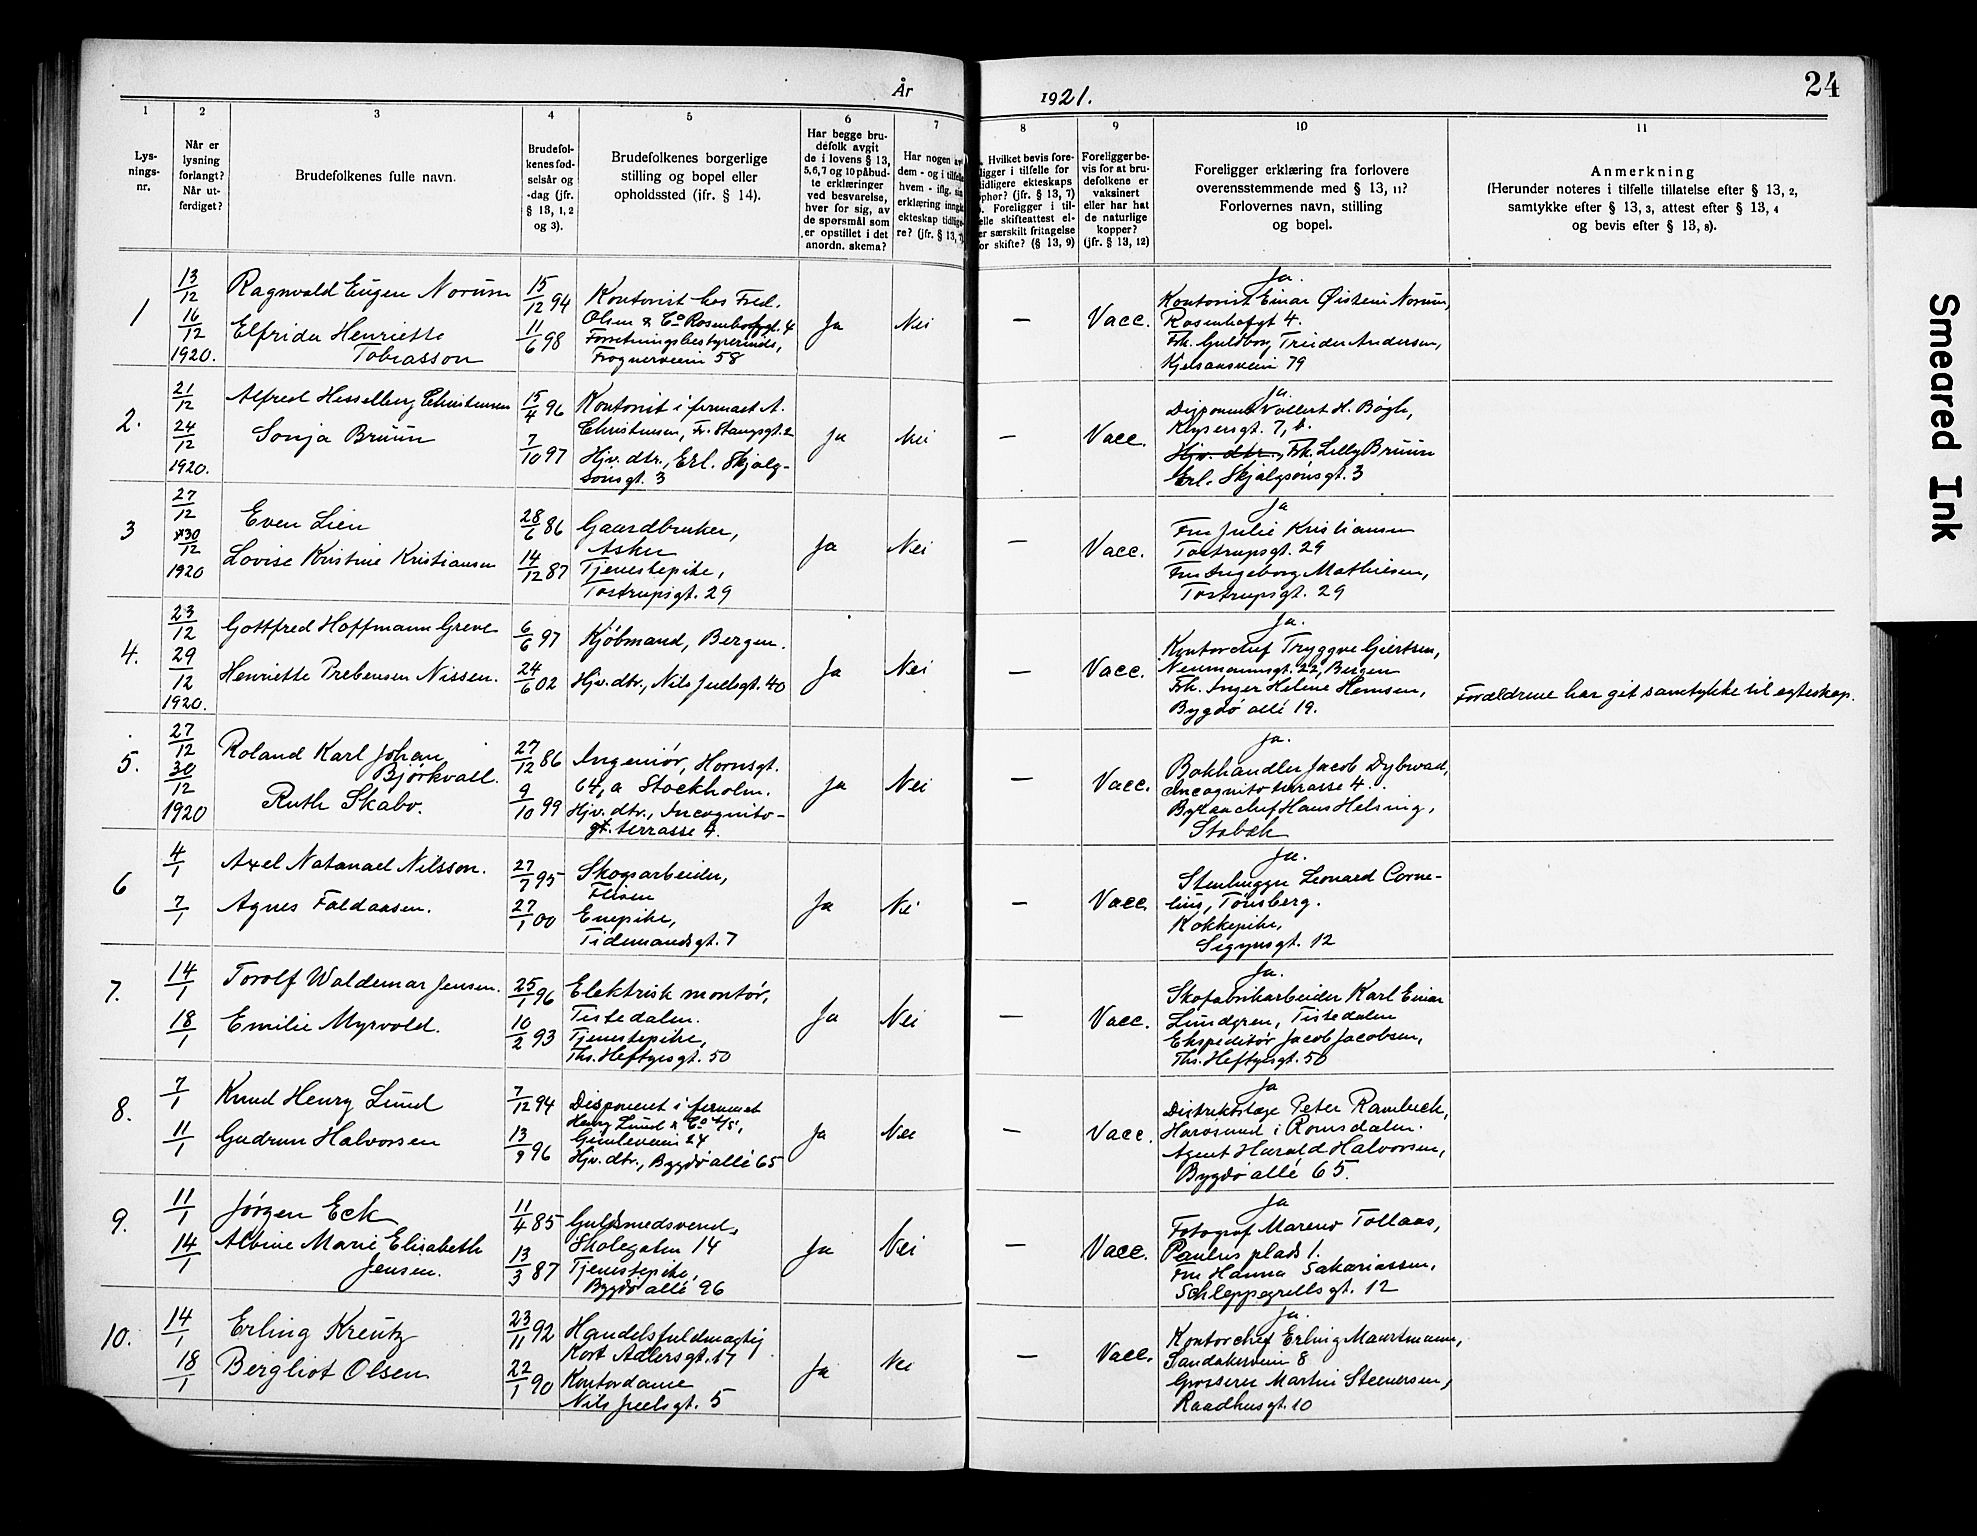 År 1921.
24
1
2
3
4
5
6
7
8
9
10
11
Lys-
nings-
nr.
Når er
lysning
forlangt?
Når ut-
ferdiget?
Brudefolkenes fulle navn.
Brudefol-
kenes fød-
selsår og
-dag (jfr.
§ 13, 1, 2
og 3).
Brudefolkenes borgerlige
stilling og bopel eller
opholdssted (jfr. § 14).
Har begge bru-
defolk avgit
de i lovens § 13,
5, 6, 7 og 10 påbud-
te erklæringer
ved besvarelse,
hver for sig, av
de spørsmål som
er opstillet i det
anordn. skema?
Har nogen av
dem - og i tilfelle
hvem - iflg. sin
erklæring inngått
ekteskap tidlige-
re? (jfr. § 13, 7)
Hvilket bevis fore-
ligger i tilfelle for
tidligere ekteskaps
ophør? (jfr. § 13, 7)
Foreligger i til-
felle skifteattest el-
er særskilt fritagelse
for skifte? (§ 13, 9)
Foreligger be-
vis for at bru-
defolkene er
vaksinert
eller har hat
de naturlige
kopper?
(jfr. § 13, 12)
Foreligger erklæring fra forlovere
overensstemmende med § 13, 11?
Forlovernes navn, stilling
og bopel.
Anmerkning
(Herunder noteres i tilfelle tillatelse efter § 13, 2,
samtykke efter § 13, 3, attest efter § 13, 4
og bevis efter § 13, 8).
1
13/12
16/12
1920.
Ragnvald Eugen Norum
Elfrida Henriette
Tobiasson
15/12 94
11/6 98
Kontorist hos Fred.
Olsen & Co Rosenhofgt. 4
Forretningsbestyrerinde,
Frognerveien 58
Ja
Nei
—
Vacc.
Ja.
Kontorist Einar Øistein Norum,
Rosenhofgt 4.
Frk. Guldborg Treider Andersen,
Kjelsaasveien 79
2.
21/12
24/12
1920.
Alfred Hesselberg Christensen
Sonja Bruun
15/4 96
7/10 97
Kontorist i firmaet A.
Christensen, Fr. Stangsgt. 2
Hjv. dtr., Erl. Skjalg-
sønsgt. 3
Ja
Nei
—
Vacc.
Ja.
Disponent Vollert H. Bøgh,
Keysersgt. 7, b.
Hjv. dtr., Frk. Lilly Bruun
Erl. Skjalgsønsgt. 3
3
27/12
30/12
1920
Even Lien
Lovise Kristine Kristiansen
28/6 86
14/12 87
Gaardbruker,
Asker
Tjenestepike,
Tostrupsgt. 29
Ja
Nei
—
Vacc.
Ja
Fru Julie Kristiansen
Tostrupsgt. 29
Fru Ingeborg Mathiesen,
Tostrupsgt. 29
4.
23/12
29/12
1920.
Gottfred Hoffmann Greve
Henriette Prebensen Nissen.
6/6 97
24/6 02
Kjøbmand, Bergen.
Hjv. dtr., Nils Juelsgt. 40
Ja
Nei
—
Vacc.
Ja.
Kontorchef Tryggve Giertsen,
Neumannsgt. 22, Bergen
Frk. Inger Helene Hemsen,
Bygdø allé 19.
Forældrene har git samtykke til egteskap.
5.
27/12
30/12
1920
Roland Karl Johan
Bjørkvall.
Ruth Skabo.
27/12 86
9/10 99
Ingeniør, Hornsgt.
64, a Stockholm.
Hjv. dtr., Incognito-
gt. terrasse 4.
Ja
Nei
—
Vacc.
Ja.
Bokhandler Jacob Dybwad,
Incognito terrasse 4.
Byraachef Hans Helsing,
Stabæk
6
4/1
7/1
Axel Natanael Nilsson.
Agnes Faldaasen.
27/7 95
27/1 00
Skogsarbeider,
Flisen
Enepike,
Tidemandsgt. 7
Ja
Nei
—
Vacc
Ja.
Stenhugger Leonard Corne-
lius, Tønsberg.
Kokkepike,
Sigynsgt. 12
7.
14/1
18/1
Torolf Waldemar Jensen.
Emilie Myrvold.
25/1 96
10/2 93
Elektrisk montør,
Tistedalen.
Tjenestepike,
Ths. Heftyesgt. 50
Ja
Nei
—
Vacc.
Ja.
Skofabrikarbeider Karl Einar
Lundgren, Tistedalen
Ekspeditør Jacob Jacobsen,
Ths. Heftyesgt. 50
8.
7/1
11/1
Knud Henry Lund
Gudrun Halvorsen
7/12 94
13/9 96
Disponent i firmaet
Henry Lund & Co A/S,
Gimleveien 24
Hjv. dtr., Bygdø allé 65
Ja
Nei
—
Vacc.
Ja
Distriktslæge Peter Rambech,
i Romsdalen.
Agent Harald Halvorsen,
Bygdø allé 65.
9.
11/1
14/1
Jørgen Eck
Albine Marie Elisabeth
Jensen.
11/4 85
13/3 87
Guldsmedsvend,
Skolegaten 14
Tjenestepike,
Bygdø allé 96
Ja
Nei
—
Vacc.
Ja
Fotograf Tollaas,
Paulus plads 1.
Fru Hanna Sakariassen,
Schleppegrellsgt. 12
10.
14/1
18/1
Erling Kreutz
Bergliot Olsen
23/11 92
22/1 90
Handelsfuldmægtig
Kort Adlersgt. 17
Kontordame
Nils Juelsgt. 5
Ja
Nei
—
Vacc.
Ja.
Kontorchef Erling Maartmann,
Sandakerveien 8
Grosserer Martin Steenersen,
Raadhusgt. 10
Smeared Ink